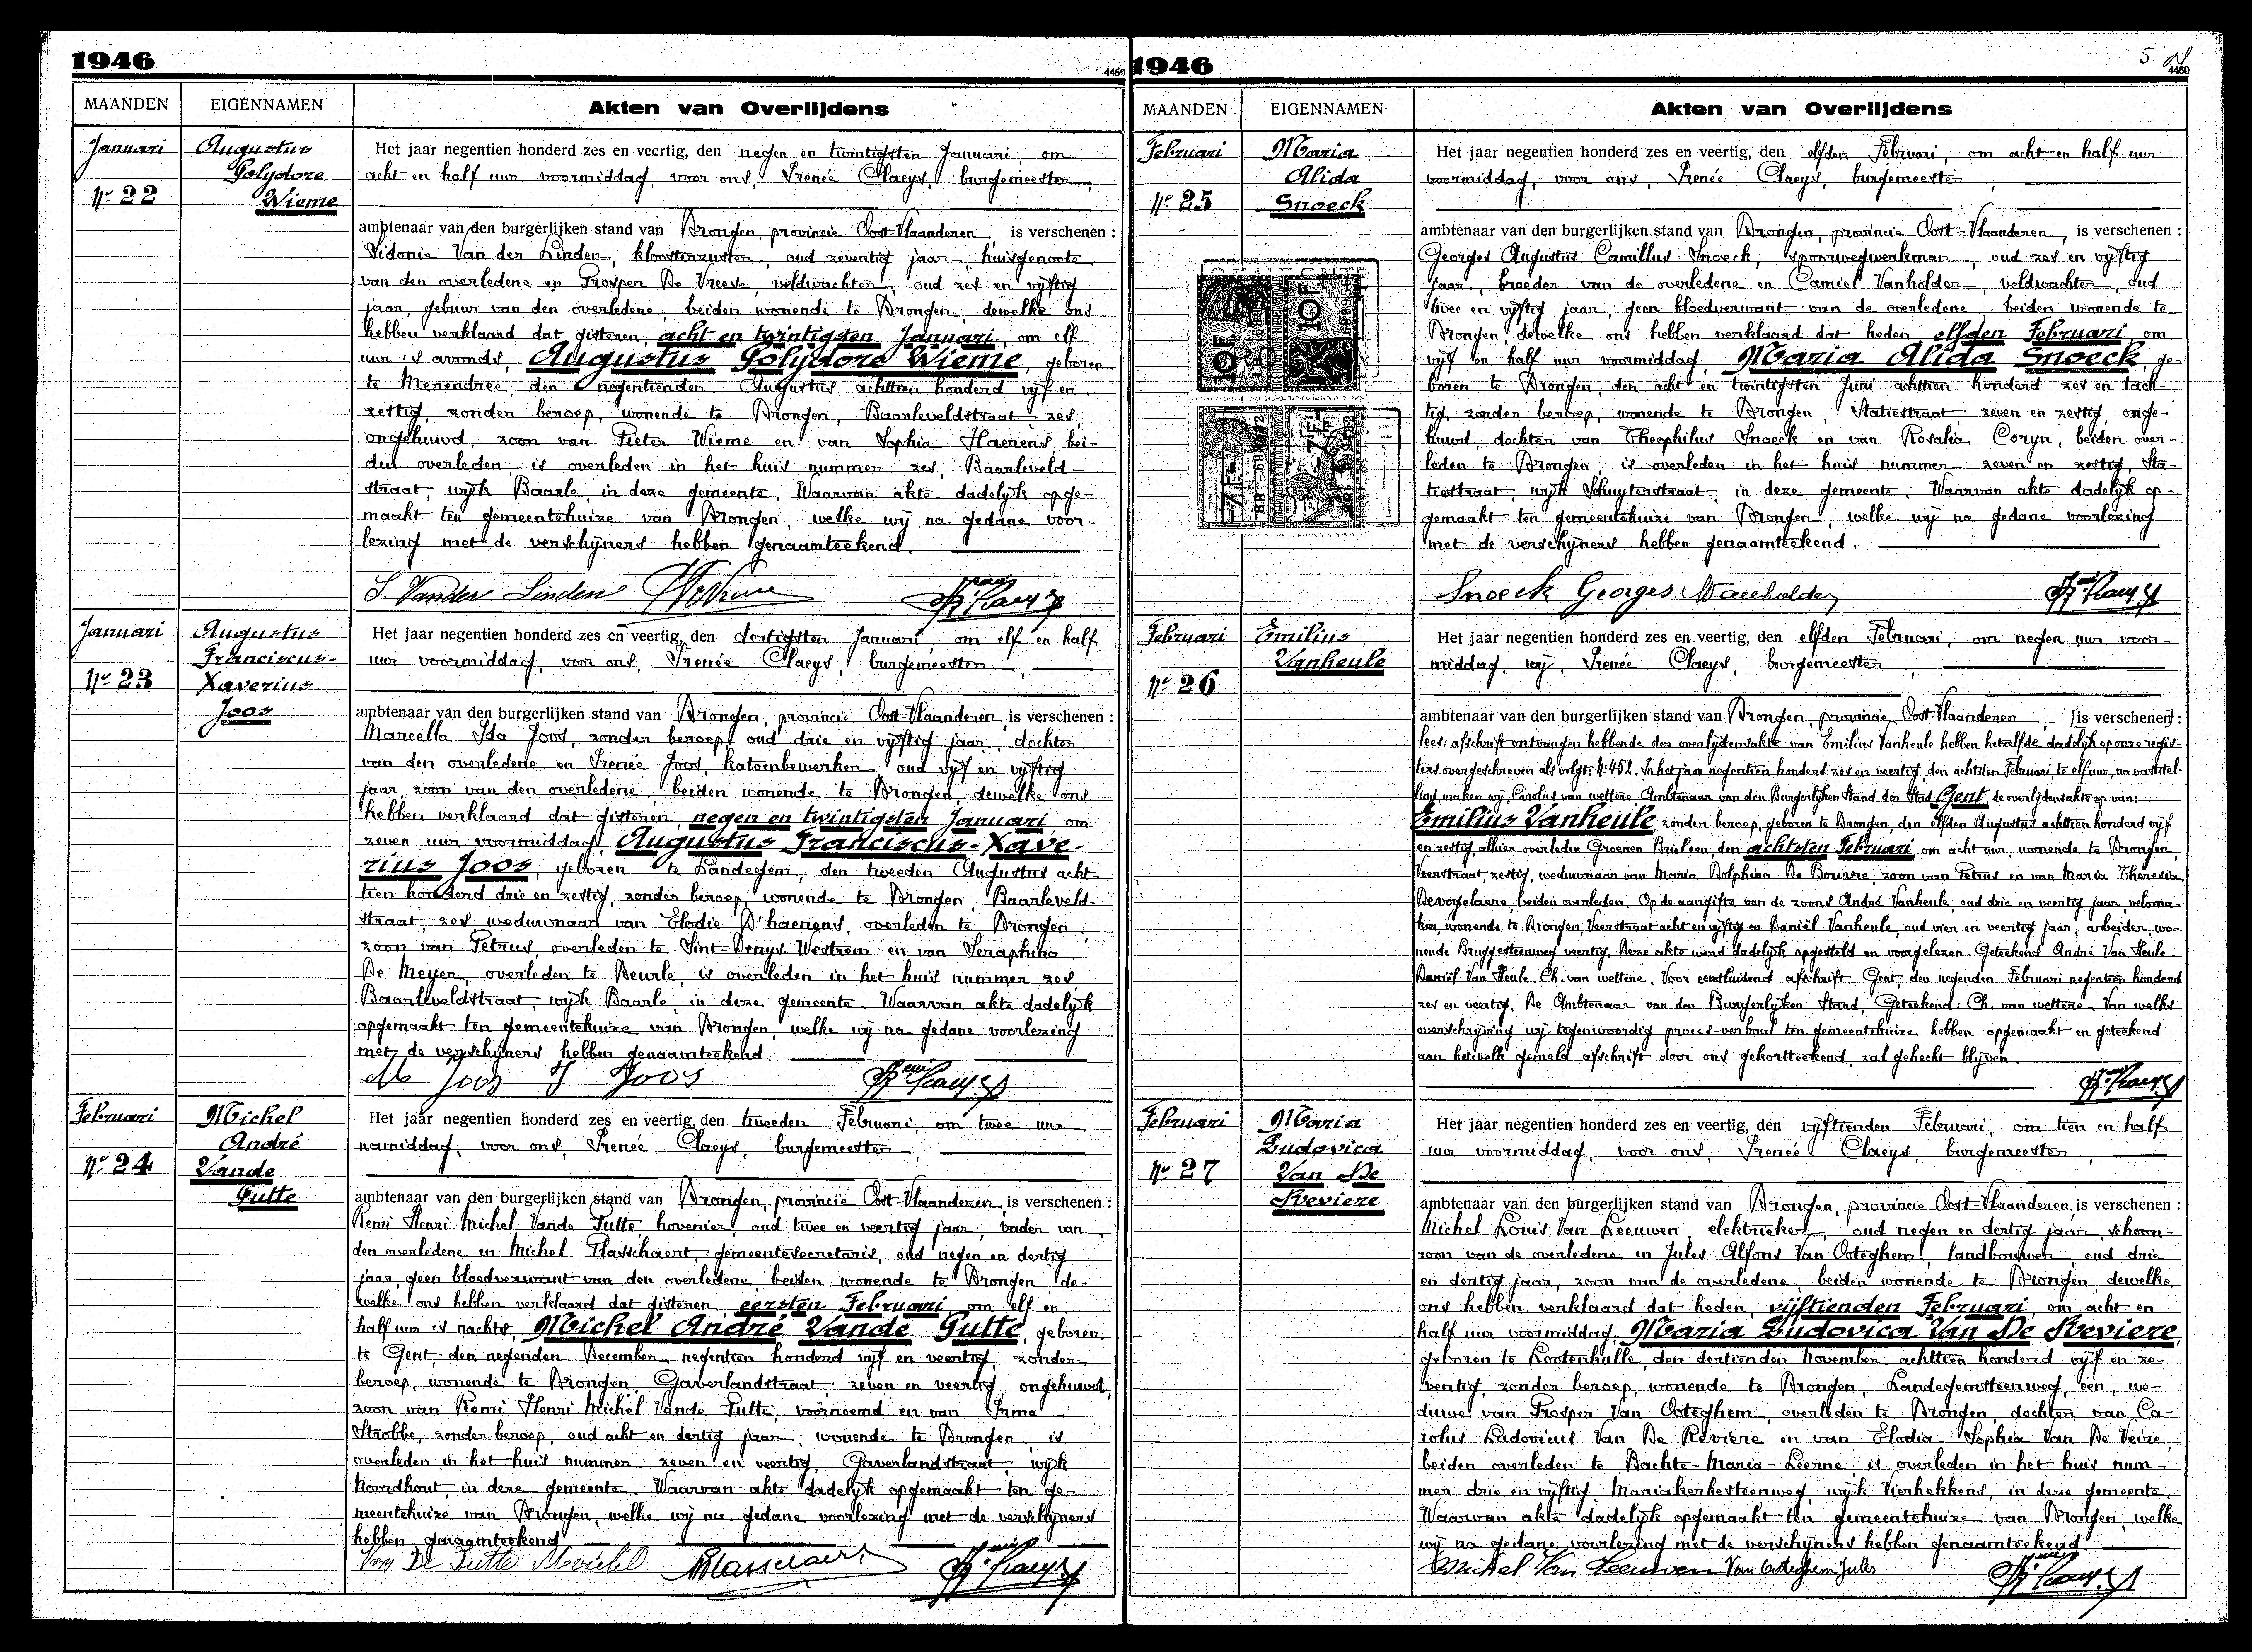 1946
4460
MAANDEN
EIGENNAMEN
Akten van Overlijdens
Januari
Nr 22
Augustus
Polydore
Wieme
Het jaar negentien honderd zes en veertig, den negen en twintigsten Januari, om
acht en half uur voormiddag, voor ons, Irenée Claeys, burgemeester,
ambtenaar van den burgerlijken stand van Drongen, provincie Oost-Vlaanderen, is verschenen :
Sidonie Van der Linden, kloosterzuster, oud zeventig jaar, huisgenoote
van den overledene en Prosper De Vreese, veldwachter, oud zes en vijftig
jaar, gebuur van den overledene, beiden wonende te Drongen, dewelke ons
hebben verklaard dat gisteren, acht en twintigsten Januari, om elf
uur 's avonds, Augustus Polydore Wieme, geboren
te Merendree, den negentienden Augustus achttien honderd vijf en
zestig, zonder beroep, wonende te Drongen, Baarleveldstraat, zes,
ongehuwd, zoon van Pieter Wieme en van Sophia Haerens bei-
den overleden, is overleden in het huis nummer zes, Baarleveld-
straat, wijk Baarle, in deze gemeente. Waarvan akte dadelijk opge-
maakt ten gemeentehuize van Drongen, welke wij na gedane voor-
lezing met de verschijners hebben genaamteekend.
S. Vander Linden
Januari
Nr 23
Augustus
Franciscus-
Xaverius
Joos
Het jaar negentien honderd zes en veertig, den dertigsten Januari, om elf en half
uur voormiddag, voor ons, Irenée Claeys, burgemeester
ambtenaar van den burgerlijken stand van Drongen, provincie Oost-Vlaanderen, is verschenen :
Marcella Ida Joos, zonder beroep, oud drie en vijftig jaar, dochter
van den overledene en Irenée Joos, katoenbewerker, oud vijf en vijftig
jaar, zoon van den overledene, beiden wonende te Drongen, dewelke ons
hebben verklaard dat gisteren, negen en twintigsten Januari, om
zeven uur voormiddag, Augustus Franciscus-Xave-
rius Joos, geboren te Landegem, den tweeden Augustus acht-
tien honderd drie en zestig, zonder beroep, wonende te Drongen, Baarleveld-
straat, zes, weduwnaar van Elodie D'haenens, overleden te Drongen,
zoon van Petrus, overleden te Sint-Denys-Westrem en van Seraphina
De Meyer, overleden te Deurle, is overleden in het huis nummer zes,
Baarleveldstraat, wijk Baarle, in deze gemeente. Waarvan akte dadelijk
opgemaakt ten gemeentehuize van Drongen, welke wij na gedane voorlezing
met de verschijners hebben genaamteekend.
M Joos J Joos
Februari
Nr 24
Michel
André
Vande
Putte
Het jaar negentien honderd zes en veertig, den tweeden Februari, om twee uur
namiddag, voor ons, Irenée Claeys, burgemeester,
ambtenaar van den burgerlijken stand van Drongen, provincie Oost-Vlaanderen, is verschenen :
Remi Henri Michel Vande Putte, hovenier, oud twee en veertig jaar, vader van
den overledene en Michel Plasschaert, gemeentesecretaris, oud negen en dertig
jaar, geen bloedverwant van den overledene, beiden wonende te Drongen, de-
welke ons hebben verklaard dat gisteren, eersten Februari, om elf en
half uur 's nachts, Michel André Vande Putte, geboren
te Gent, den negenden December negentien honderd vijf en veertig, zonder
beroep, wonende te Drongen, Gaverlandstraat, zeven en veertig, ongehuwd,
zoon van Remi Henri Michel Vande Putte, voornoemd en van Irma
Strobbe, zonder beroep, oud acht en dertig jaar, wonende te Drongen, is
overleden in het huis nummer zeven en veertig, Gaverlandstraat, wijk
Noordhout, in deze gemeente. Waarvan akte dadelijk opgemaakt ten ge-
meentehuize van Drongen, welke wij na gedane voorlezing met de verschijners
hebben genaamteekend
Van De Putte Michel
1946
5
4460
MAANDEN
EIGENNAMEN
Akten van Overlijdens
Februari
Nr 25
Maria
Alida
Snoeck
10F
10F
7F
7F
Het jaar negentien honderd zes en veertig, den elfden Februari, om acht en half uur
voormiddag, voor ons, Irenée Claeys, burgemeester,
ambtenaar van den burgerlijken stand van Drongen, provincie Oost-Vlaanderen, is verschenen :
Georges Augustus Camillus Snoeck, spoorwegwerkman, oud zes en vijftig
jaar, broeder van de overledene en Camiel Vanholder, veldwachter, oud
twee en vijftig jaar, geen bloedverwant van de overledene, beiden wonende te
Drongen, dewelke ons hebben verklaard dat heden, elfden Februari, om
vijf en half uur voormiddag, Maria Alida Snoeck, ge-
boren te Drongen, den acht en twintigsten Juni achttien honderd zes en tach-
tig, zonder beroep, wonende te Drongen, Statiestraat zeven en zestig, onge-
huwd, dochter van Theophilus Snoeck en van Rosalia Coryn, beiden over-
leden te Drongen, is overleden in het huis nummer zeven en zestig, Sta-
tiestraat, wijk Schuyterstraat, in deze gemeente. Waarvan akte dadelijk op-
gemaakt ten gemeentehuize van Drongen, welke wij na gedane voorlezing
met de verschijners hebben genaamteekend.
Snoeck Georges
Februari
Nr 26
Emilius
Vanheule
Het jaar negentien honderd zes en veertig, den elfden Februari, om negen uur voor-
middag, wij, Irenée Claeys, burgemeester,
ambtenaar van den burgerlijken stand van Drongen, provincie Oost-Vlaanderen, [is verschenen] :
lees: afschrift ontvangen hebbende der overlijdensakte van Emilius Vanheule hebben hetzelfde dadelijk op onze regis-
ters overgeschreven als volgt: Nr 452. In het jaar negentien honderd zes en veertig, den achtsten Februari, te elf uur, na vaststel-
ling, maken wij, Carolus van wettere, Ambtenaar van den Burgerlijken Stand der Stad Gent, de overlijdensakte op van:
Emilius Vanheule, zonder beroep, geboren te Drongen, den elfden Augustus achttien honderd vijf
en zestig, alhier overleden Groenen Briel een, den achtsten Februari om acht uur, wonende te Drongen,
Veerstraat, zestig, weduwnaar van Maria Dolphina De Bouvre, zoon van Petrus en van Maria Theresia
Devogelaere, beiden overleden. Op de aangifte van de zoons André Vanheule, oud drie en veertig jaar, veloma-
ker, wonende te Drongen, Veerstraat acht en vijftig en Daniël Vanheule, oud vier en veertig jaar, arbeider, wo-
nende Bruggesteenweg veertig. Deze akte werd dadelijk opgesteld en voorgelezen. Geteekend André Van Heule.
Daniël Van Heule. Ch. van wettere. Voor eensluidend afschrift. Gent, den negenden Februari negentien honderd
zes en veertig. De Ambtenaar van den Burgerlyken Stand, Geteekend: Ch. van wettere. Van welke
overschrijving wij tegenwoordig proces-verbaal ten gemeentehuize hebben opgemaakt en geteekend
aan hetwelk gemeld afschrift door ons gekortteekend, zal gehecht blijven.
Februari
Nr 27
Maria
Ludovica
Van De
Reviere
Het jaar negentien honderd zes en veertig, den vijftienden Februari, om tien en half
uur voormiddag, voor ons, Irenée Claeys, burgemeester,
ambtenaar van den burgerlijken stand van Drongen, provincie Oost-Vlaanderen, is verschenen :
Michel Louis Van Leeuwen, elektrieker, oud negen en dertig jaar, schoon-
zoon van de overledene en Jules Alfons Van Ooteghem, landbouwer, oud drie
en dertig jaar, zoon van de overledene, beiden wonende te Drongen, dewelke
ons hebben verklaard dat heden, vijftienden Februari, om acht en
half uur voormiddag, Maria Ludovica Van De Reviere,
geboren te Lootenhulle, den dertienden November achttien honderd vijf en ze-
ventig, zonder beroep, wonende te Drongen, Landegemsteenweg, één, we-
duwe van Prosper Van Ooteghem, overleden te Drongen, dochter van Ca-
rolus Ludovicus Van De Reviere en van Elodia Sophia Van De Veire,
beiden overleden te Bachte-Maria-Leerne, is overleden in het huis num-
mer drie en vijftig, Mariakerkesteenweg, wijk Vierhekkens, in deze gemeente.
Waarvan akte dadelijk opgemaakt ten gemeentehuize van Drongen, welke
wij na gedane voorlezing met de verschijners hebben genaamteekend.
Michel Van Leeuwen Van Ooteghem Jules